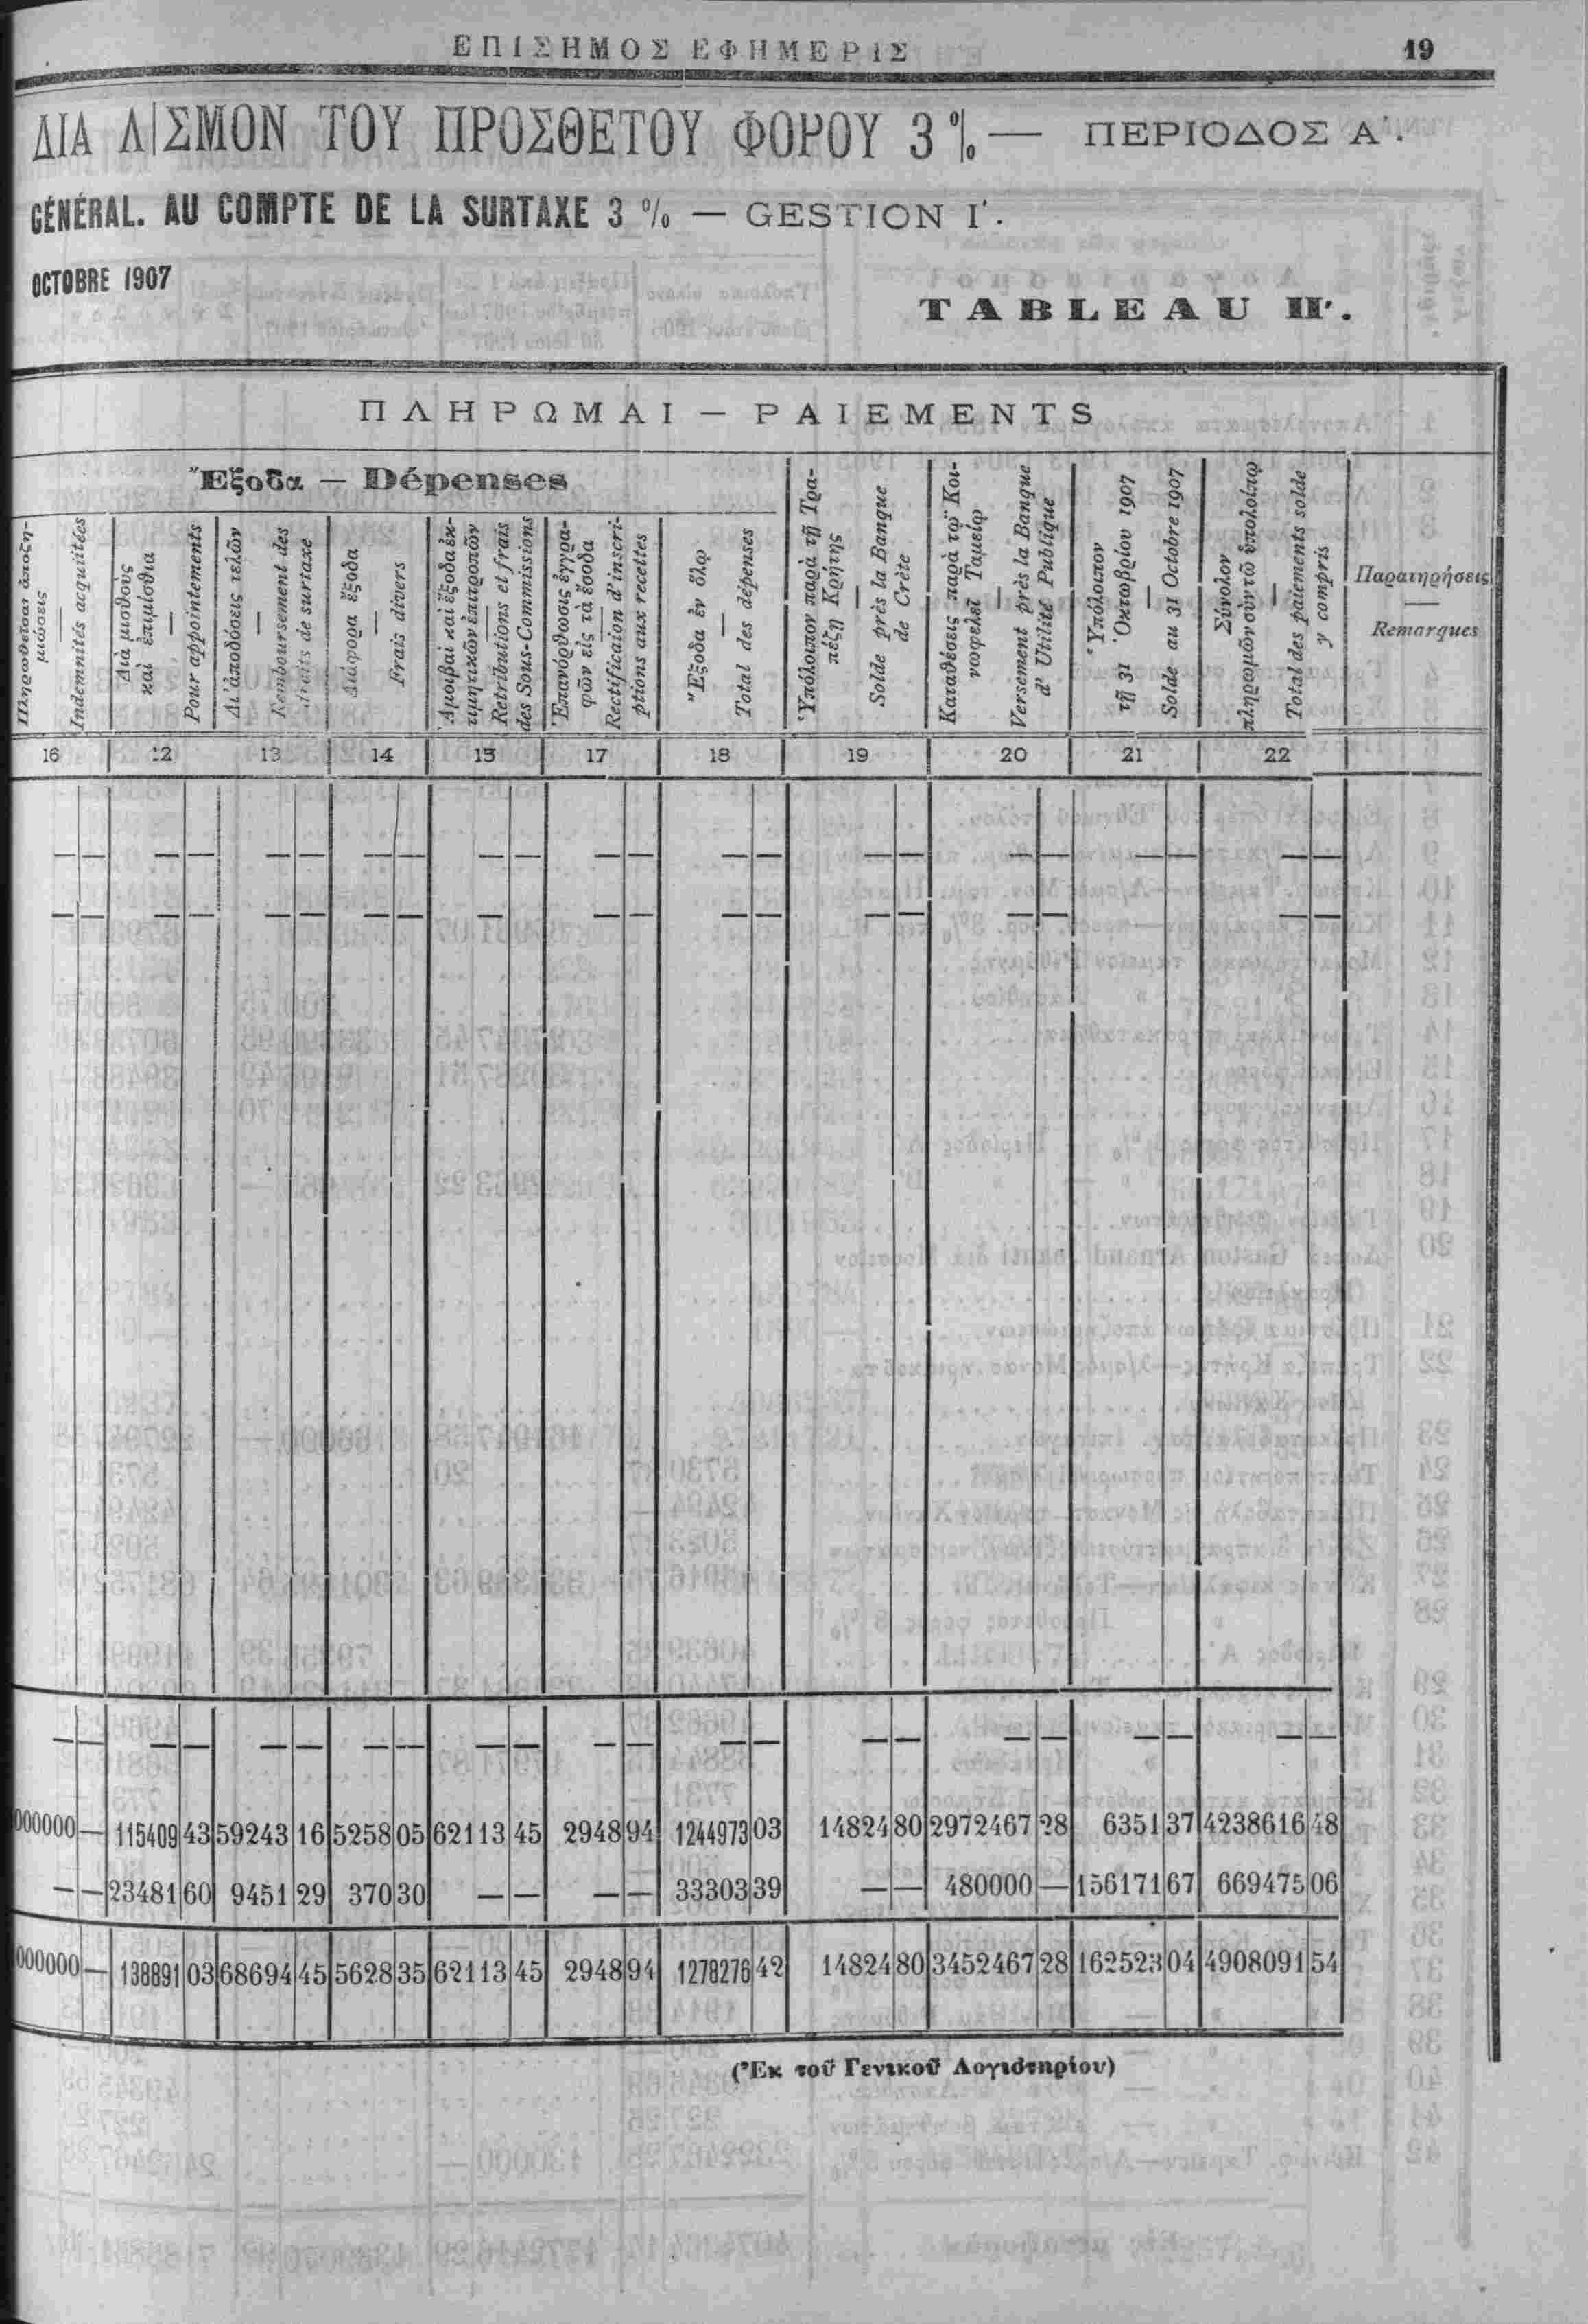 ΕΠΙΣΗΜΟΣ ΕΦΗΜΕΡΙΣ 19
ΔΙΑ ΛΙΣΜΟΝ ΤΟΥ ΠΡΟΣΘΕΤΟΥ ΦΟΡΟΥ 3 % — ΠΕΡΙΟΔΟΣ Α΄.
GÉNÉRAL. AU COMPTE DE LA SURTAXE 3 % — GESTION I΄.
OCTOBRE 1907
TABLEAU II΄.
ΠΛΗΡΩΜΑΙ — PAIEMENTS
Ἔξοδα — Dépenses
Πληρωθεῖσαι ἀποζημιώσεις — Indemnités acquittées
Διὰ μισθοὺς καὶ ἐπιμίσθια — Pour appointements
Δι' ἀποδόσεις τελῶν — Remboursement des droits de surtaxe
Διάφορα ἔξοδα — Frais divers
Ἀμοιβαὶ καὶ ἔξοδα ἐκτιμητικῶν ἐπιτροπῶν — Retributions et frais des Sous-Commissions
Ἐπανόρθωσις ἐγγραφῶν εἰς τὰ ἔσοδα — Rectification d'inscriptions aux recettes
Ἔξοδα ἐν ὅλῳ — Total des dépenses
Ὑπόλοιπον παρὰ τῇ Τραπέζῃ Κρήτης — Solde près la Banque de Crète
Καταθέσεις παρὰ τῷ Κοινωφελεῖ Ταμείῳ — Versement près la Banque d' Utilité Publique
Ὑπόλοιπον τῇ 31 Ὀκτωβρίου 1907 — Solde au 31 Octobre 1907
Σύνολον πληρωμῶν σὺν τῷ ὑπολοίπῳ — Total des paiements solde y compris
Παρατηρήσεις — Remarques
16 12 13 14 15 17 18 19 20 21 22
— — — — — — — — — — — — — — — — — — — — — —
— — — — — — — — — — — — — — — — — — —
— — — — — — — — — — — — — — — — — — — — — —
000000 — 115409 43 59243 16 5258 05 62113 45 2948 94 1244973 03 14824 80 2972467 28 6351 37 4238616 48
— — 23481 60 9451 29 370 30 — — — — 33303 39 — — 480000 — 156171 67 669475 06
000000 — 138891 03 68694 45 5628 35 62113 45 2948 94 1278276 42 14824 80 3452467 28 162523 04 4908091 54
(Ἐκ τοῦ Γενικοῦ Λογιστηρίου)